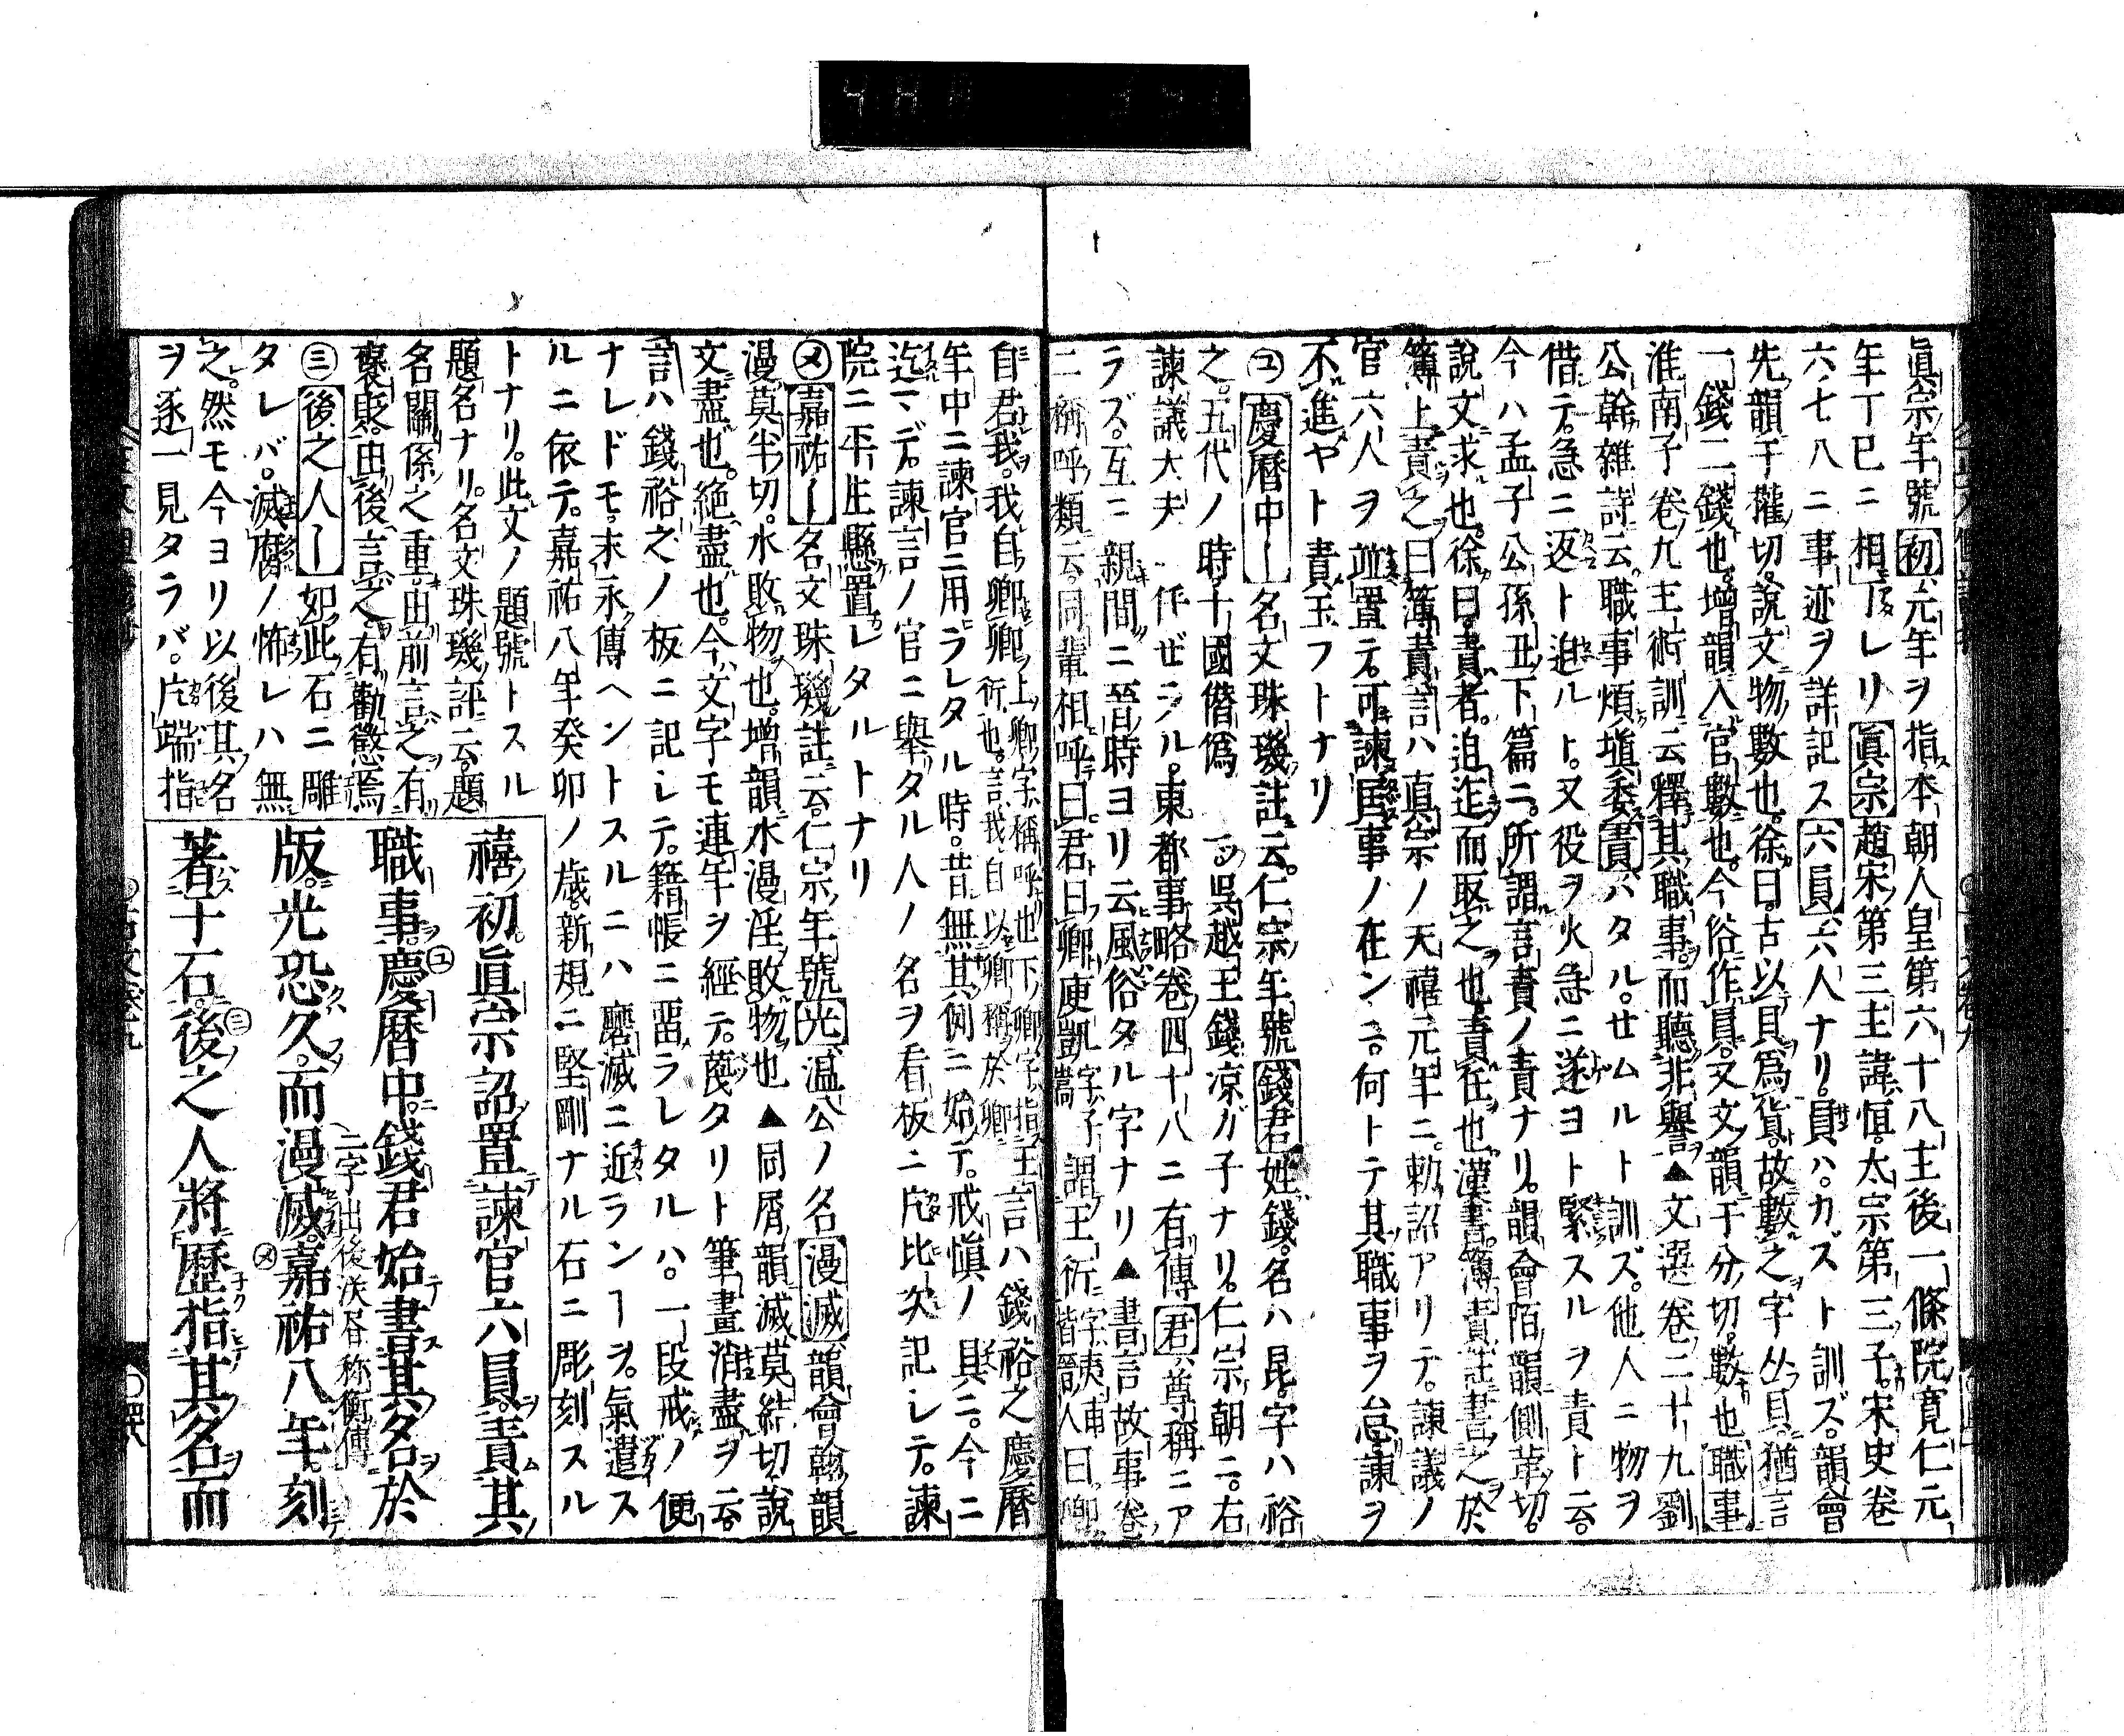 眞宗ノ年號初元年ヲ指本朝人皇第六十八主後一條院寛仁元
年丁巳ニ相丁レリ眞宗趙宋第三主諱恒太宗第三子宋史卷
六七八ニ事迹ヲ詳記ス六員六人ナリ員ハカズト訓ズ韻會
先韻于權切説文物數也徐曰古以貝爲貨故數之字从貝猶言
一錢二錢也増韻入官數也今俗作貟又文韻于分切數也職事
淮南子卷九主術訓云釋其職事而聽非譽▲文選卷二十九劉
公幹雜詩云職事煩塡委責ハタルせムルト訓ズ他人ニ物ヲ
借テ急ニ返ト迫ルト又役ヲ火急ニ遂ヨト緊スルヲ責ト云
今ハ孟子公孫丑下篇ニ所謂言責ノ責ナリ韻會陌韻側革切
説文求也徐曰責者迫迮而取之也責在也漢書簿責註書之於
簿上責之曰簿責言ハ眞宗ノ天禧元年ニ勅詔アリテ諫議ノ
官六人ヲ並置テ可諫匡事ノ在ンニ何トテ其職事ヲ怠諫ヲ
不進ヤト責玉フトナリ
ユ慶暦中ー名文珠璣註云仁宗年號錢君姓錢名ハ昆字ハ裕
之五代ノ時十國僭僞ノ一呉越王錢凉ガ子ナリ仁宗朝ニ右
諫議大夫ニ任ぜラル東都事略卷四十八ニ有傳君ハ尊稱ニア
ラズ互ニ親間ニ晋時ヨリ云風俗タル字ナリ▲書言故事卷
二稱呼類云同輩相呼曰君曰卿庾凱字子嵩謂王衍字夷甫晉人曰卿
自君我我自卿卿上卿字稱呼也下卿字指王衍也言我自以卿稱於卿言ハ錢裕之慶暦
年中ニ諫官ニ用ラレタル時昔無其例ニ始テ戒愼ノ具ニ今ニ
迄マデ諫言ノ官ニ擧タル人ノ名ヲ看板ニ比次記レテ諫
院ニ平生懸置レタルトナリ
メ嘉祐ー名文珠璣註云仁宗年號光温公ノ名漫滅韻會翰韻
漫莫半切水敗物也増韻水漫淫敗物也▲同屑韻滅莫結切説
文盡也絶盡也今文字モ連年ヲ經テ蔑タリト筆畫消盡ヲ云
言ハ錢裕之ノ板ニ記レテ籍帳ニ畱ラレタルハ一段戒ノ便
ナレドモ末永傳ヘントスルニハ磨滅ニ近ランーヲ氣遣ス
ルニ依テ嘉祐八年癸卯ノ歳新規ニ堅剛ナル石ニ彫刻スル
トナリ此文ノ題號トスル
題名ナリ名文珠璣評云題
名關係之重由前言之有
褒貶由後言之有勸懲焉
ミ後之人ー如此石ニ雕
タレバ滅磨ノ怖レハ無
之然モ今ヨリ以後其名
ヲ逐一見タラバ片端指
禧初眞宗詔置諫官六員責其
職事慶暦中錢君始書其名於
版光恐久而漫滅嘉祐八年刻
著于石後之人將歷指其名而